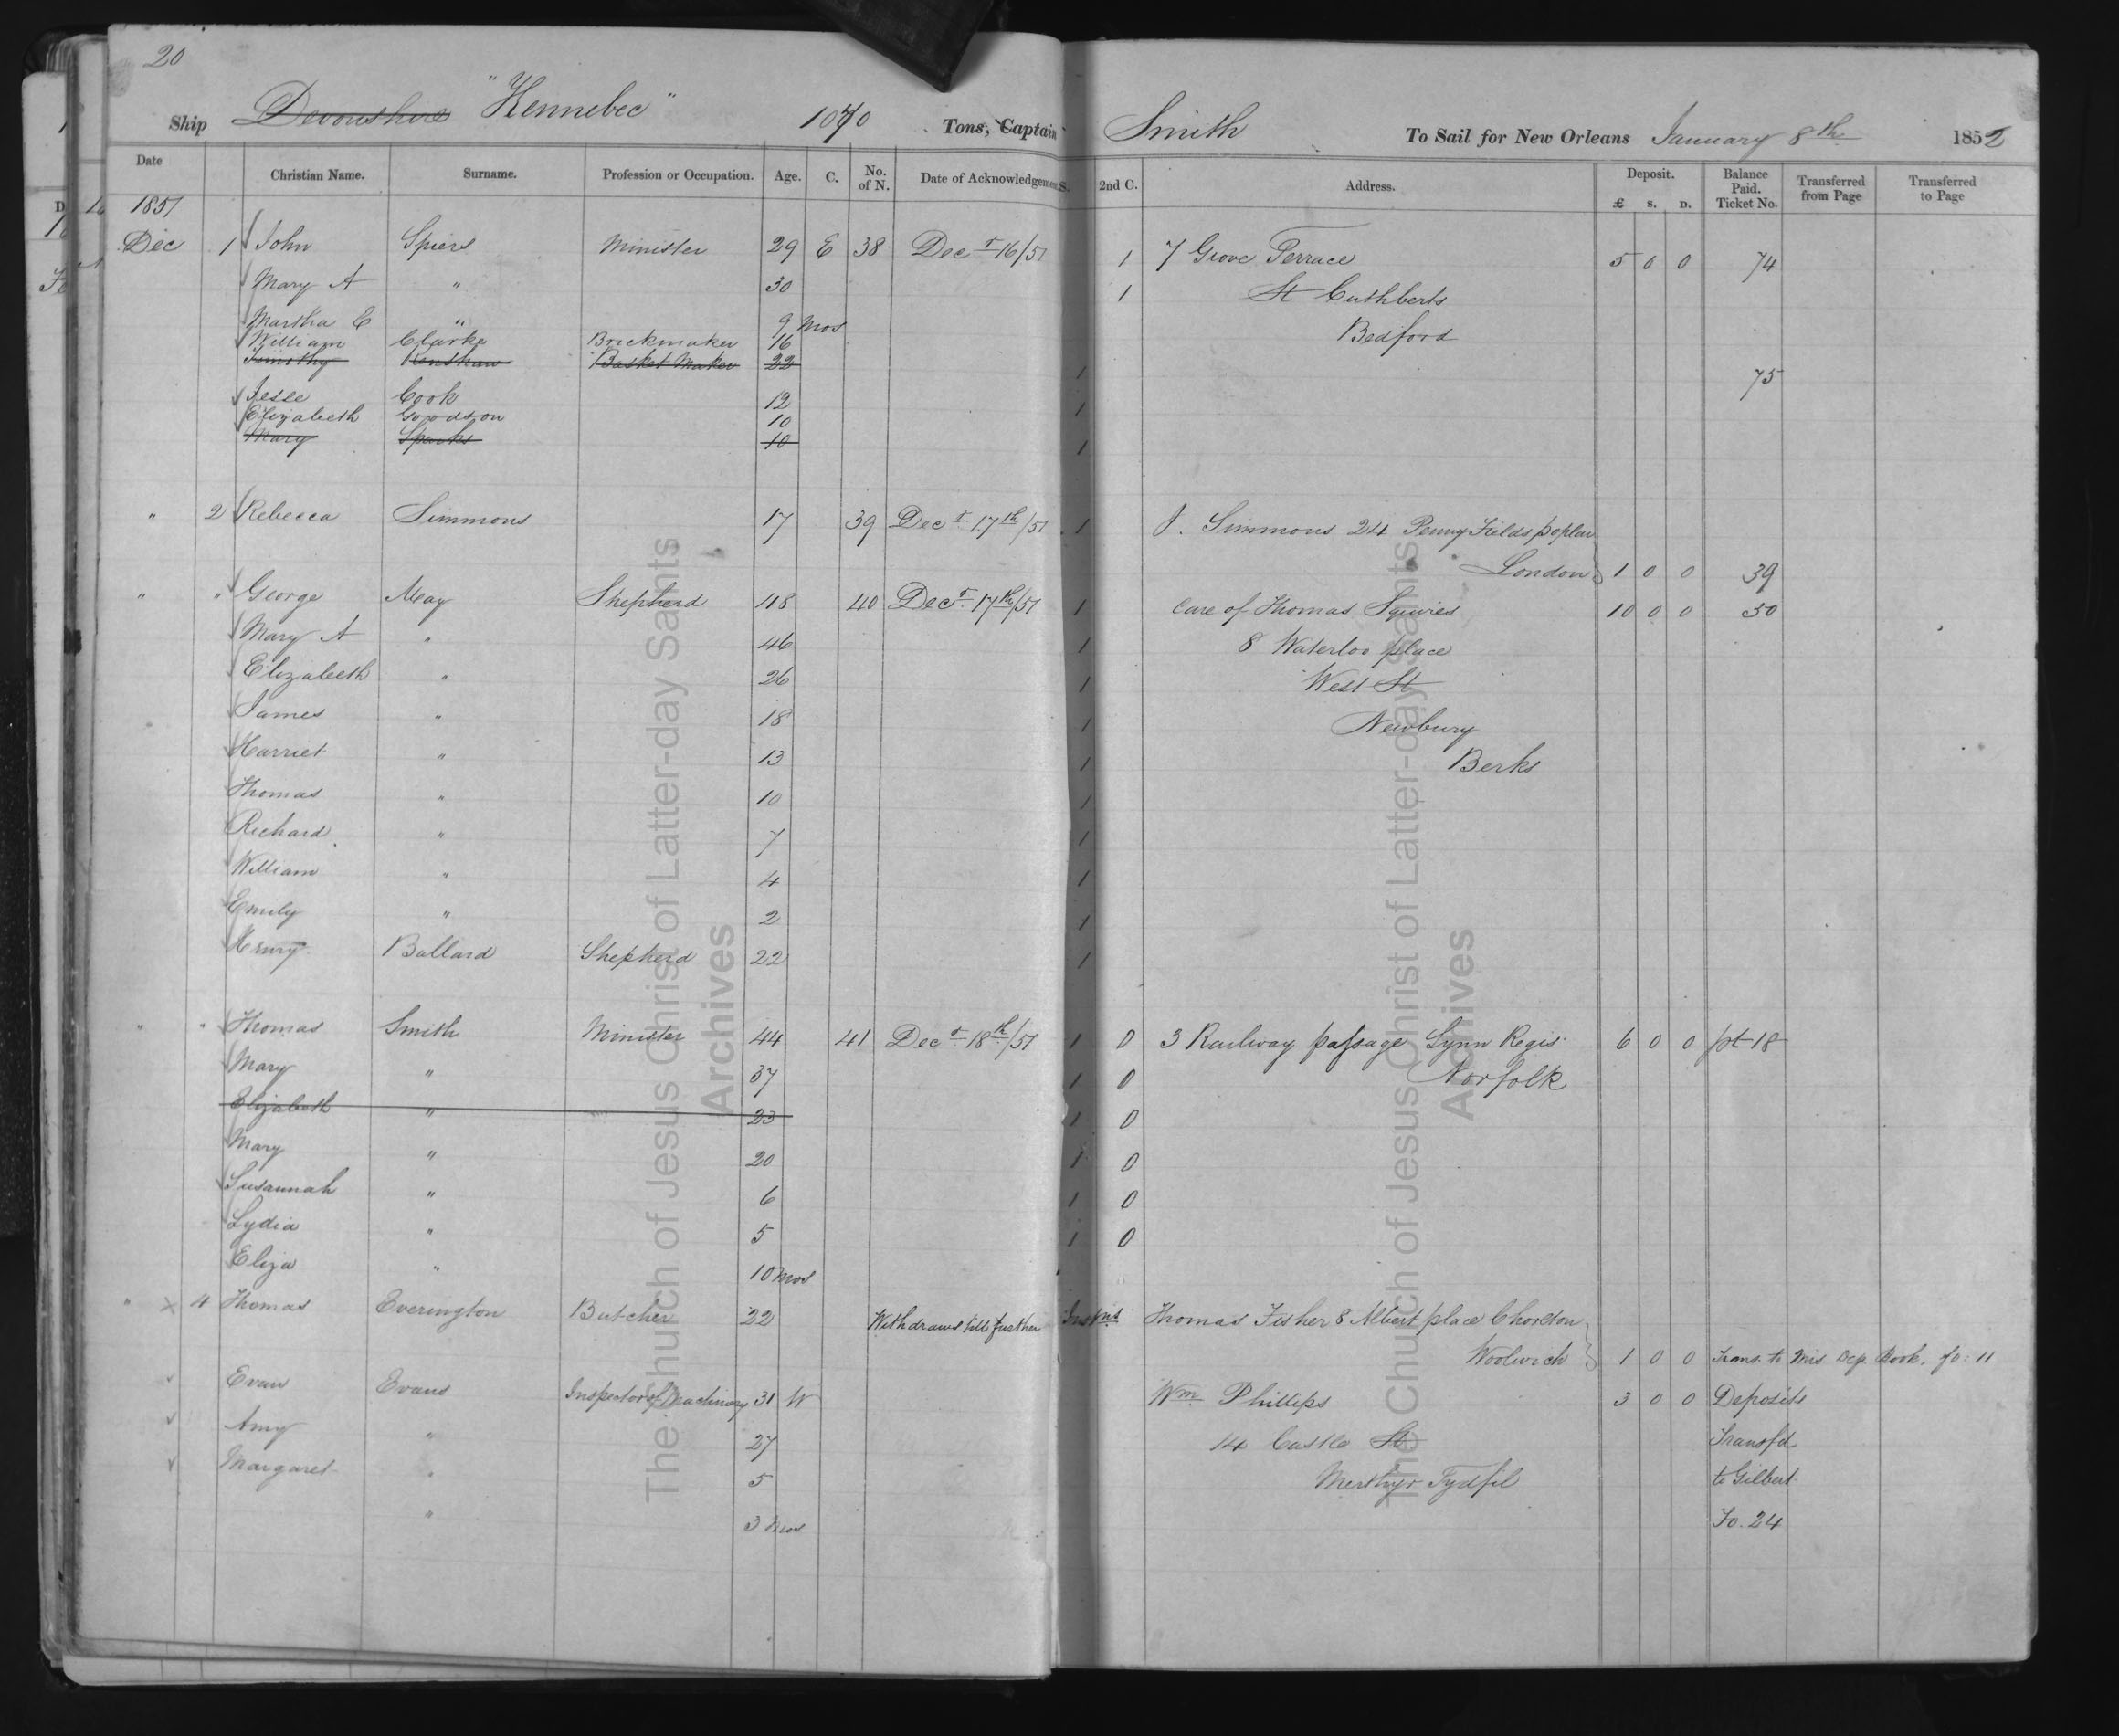 20
Ship Devonshire "Kennebec" 1070 Tons, Captain Smith To Sail for New Orleans January 8th 1852
Date Christian Name. Surname. Profession or Occupation. Age. C. No. of N. Date of Acknowledgements. 2nd C. Address. Deposit. £ s. D. Balance Paid. Ticket No. Transferred from Page Transferred to Page
1851
Dec 1 John Spiers Minister 29 E 38 Decr 16/51 1 7 Grove Terrace 5 0 0 74
Mary A " 30 1 St Cuthberts
Martha E " 9 Mos Bedford
William Clarke Brickmaker 16
Timothy Kenshaw Basket Maker 22 1 75
Jesse Cook 12 1
Elizabeth Goodson 10
Mary Sparks 10 1
" 2 Rebecca Simmons 17 39 Decr 17th/51 1 J. Simmons 24 Penny Fields poplar
London 1 0 0 39
" " George May Shepherd 48 40 Decr 17th/51 1 Care of Thomas Squires 10 0 0 50
Mary A " 46 1 8 Waterloo place
Elizabeth " 26 1 West St
James " 18 1 Newbury
Harriet " 13 1 Berks
Thomas " 10 1
Richard " 7 1
William " 4 1
Emily " 2 1
Henry Ballard Shepherd 22 1
" " Thomas Smith Minister 44 41 Decr 18th/51 1 0 3 Railway passage Lynn Regis 6 0 0 pt 18
Mary " 37 1 0 Norfolk
Elizabeth " 23 1 0
Mary " 20 1 0
Susannah " 6 1 0
Lydia " 5 1 0
Eliza " 10 mos
" x 4 Thomas Everington Butcher 22 Withdraws till further Instns Thomas Fisher 8 Albert place Chorlton
Woolwich 1 0 0 Trans. to Mis Dep. Book. fo: 11
Evan Evans Inspector of Machinery 31 W Wm Phillips 3 0 0 Deposits
Amy " 27 14 Castle St Transfd
Margaret " 5 Merthyr Tydfil to Gilbert
" 3 mos Fo. 24
The Church of Jesus Christ of Latter-day Saints
Archives
The Church of Jesus Christ of Latter-day Saints
Archives